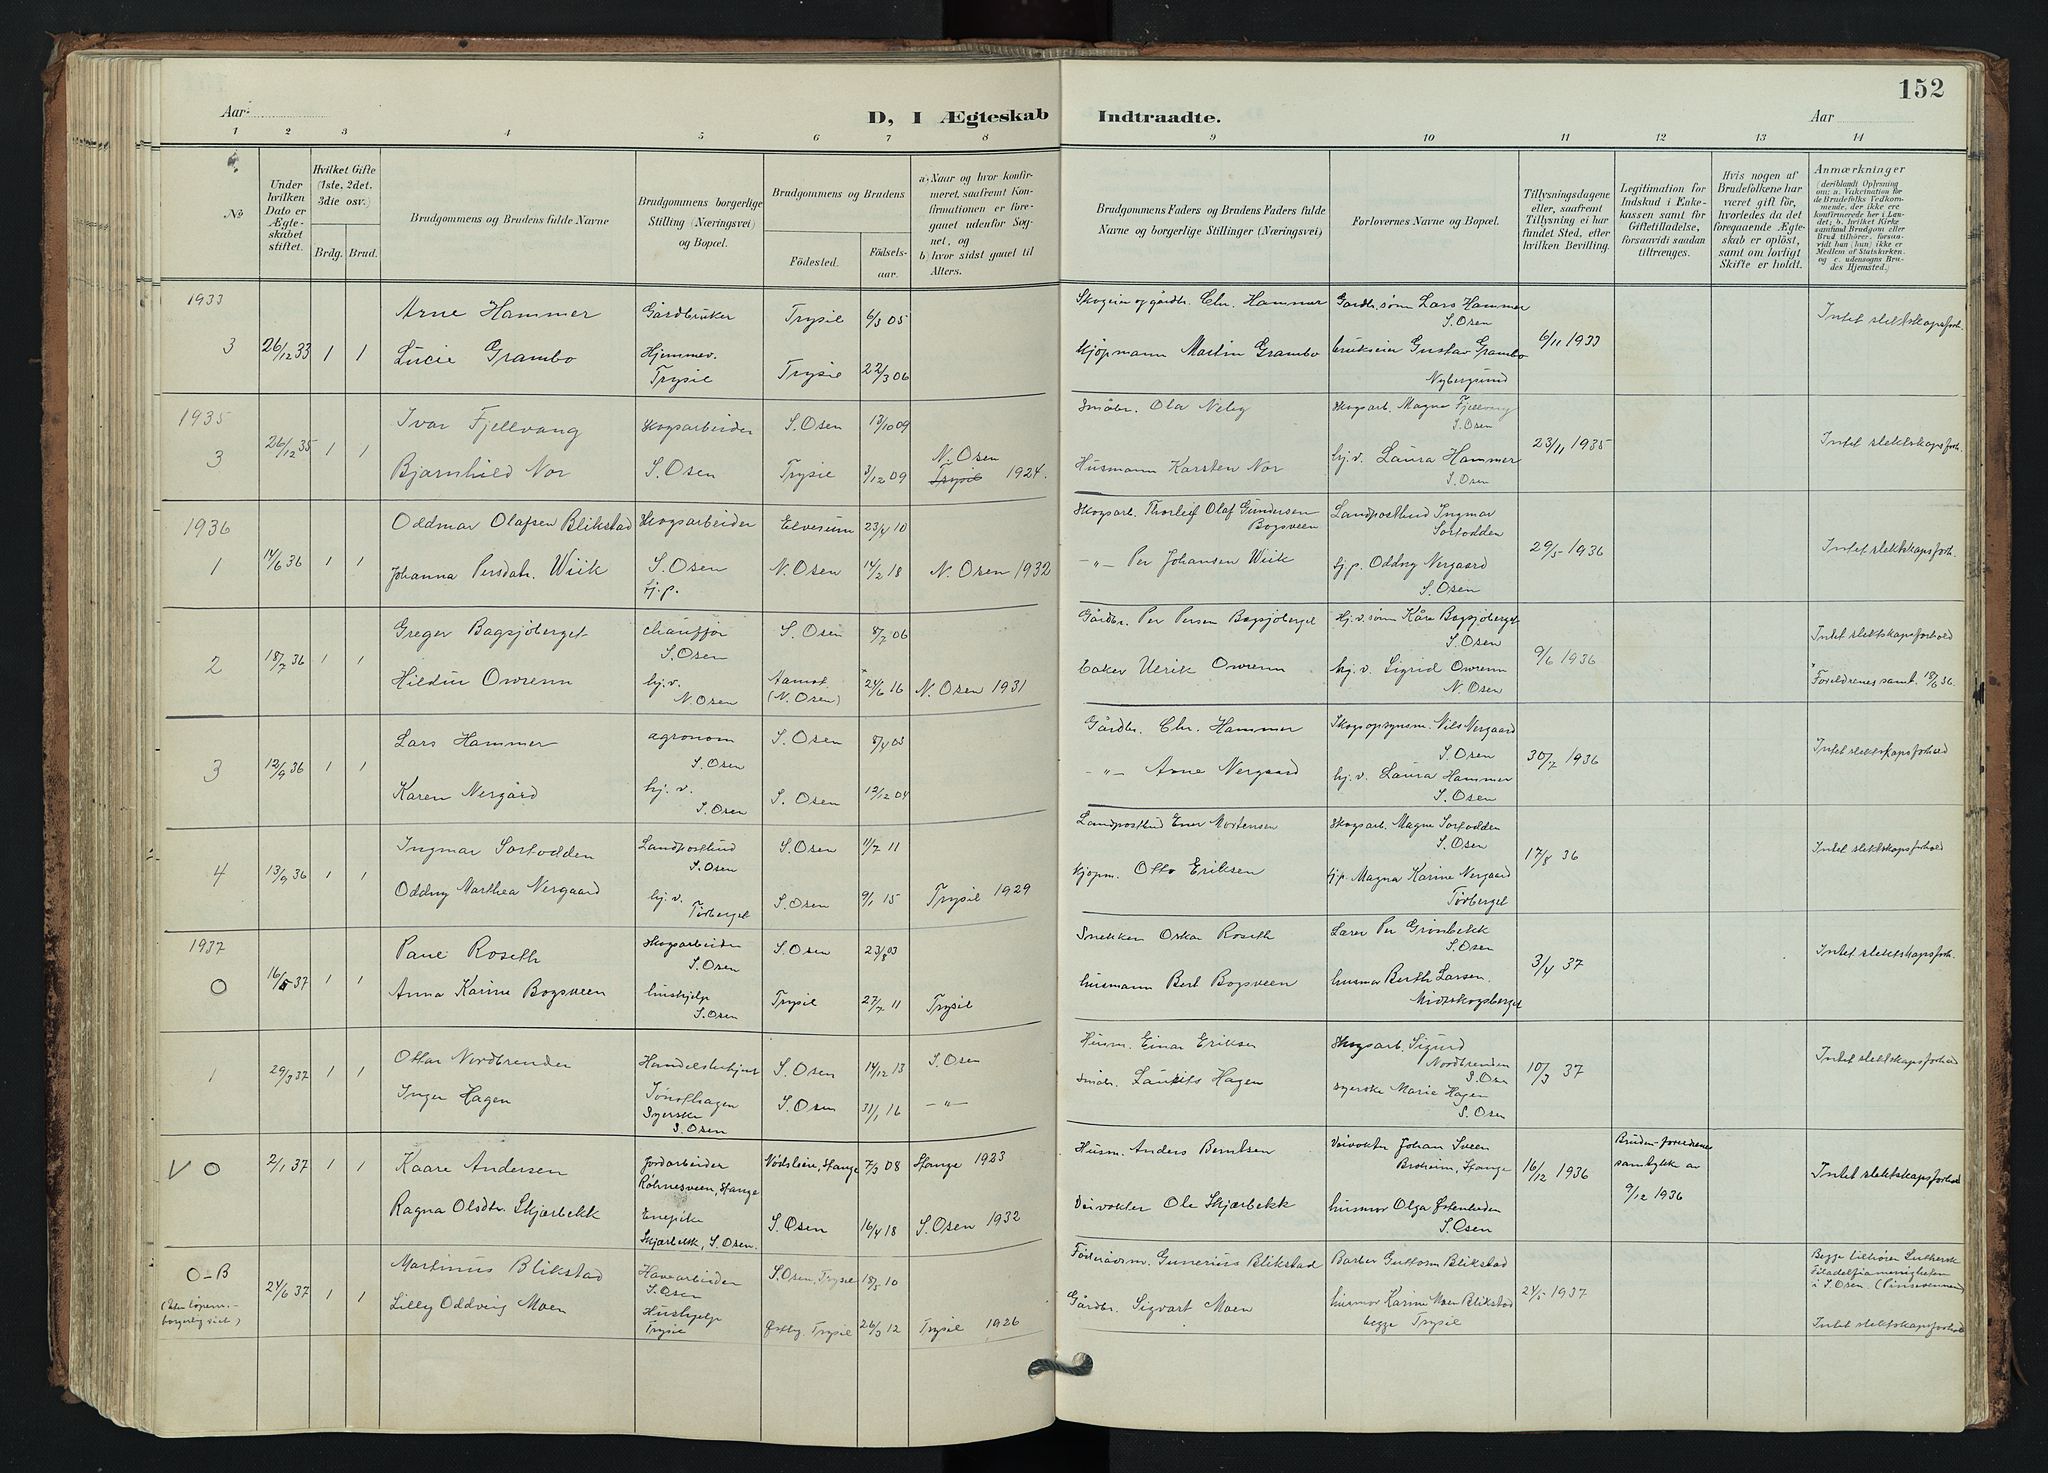 152
Aar
D, I Ægteskab Indtraadte.
Aar
1 2 3 4 5 6 7 8 9 10 11 12 13 14
No
Under hvilken Dato er Ægteskabet stiftet.
Hvilket Gifte (1ste, 2det, 3die osv.)
Brdg. Brud.
Brudgommens og Brudens fulde Navne
Brudgommens borgerlige Stilling (Næringsvei) og Bopæl.
Brudgommens og Brudens
Födested.
Födsels-aar.
a) Naar og hvor konfirmeret, saafremt Konfirmationen er foregaaet udenfor Sognet, og
b) hvor sidst gaaet til Alters.
Brudgommens Faders og Brudens Faders fulde Navne og borgerlige Stillinger (Næringsvei)
Forlovernes Navne og Bopæl.
Tillysningsdagene eller, saafremt Tillysning ei har fundet Sted, efter hvilken Bevilling.
Legitimation for Indskud i Enkekassen samt for Giftetilladelse, forsaavidt saadan tiltrænges.
Hvis nogen af Brudefolkene har været gift før, hvorledes da det foregaaende Ægteskab er oplöst, samt om lovligt Skifte er holdt.
Anmærkninger
(deriblandt Oplysning om: a. Vakcination for de Brudefolks Vedkommende, der ikke ere konfirmerede her i Landet; b. hvilket Kirkesamfund Brudgom eller Brud tilhörer, forsaavidt han (hun) ikke er Medlem af Statskirken, og c. udensogns Brudes Hjemsted.)
1933
3 26/12 33 1 1 Arne Hammer Gårdbruker Trysil 6/3 05 Skogeier og gårdbr. Chr. Hammer Gardbr.sønn Lars Hammer S. Osen 6/11 1933 Intet slektskapsforh.
Lucie Grambo Hjemmev. Trysil Trysil 22/3 06 Kjøpmann Martin Grambo brukseier Gustav Grambo Nybergsund
1935
3 26/12 35 1 1 Ivar Fjellvang Skogsarbeider S. Osen 13/10 09 Småbr. Ola Neby Skogsarb. Magne Fjellvang S. Osen 23/11 1935 Intet slektskapsforh.
Bjarnhild Nor S. Osen Trysil 3/12 09 N. Osen Trysil 1924. Husmann Karsten Nor hj.v. Laura Hammer S. Osen
1936
1 14/6 36 1 1 Oddmar Olafsen Blikstad Skogsarbeider Elverum 23/4 10 Skogsarb. Thorleif Olaf Gundersen Bogsveen Landpostbud Ingmar Sortodden 29/5 1936 Intet slektskapsforh.
Johanna Persdatr. Wiik S. Osen tj.p. N. Osen 14/2 18 N. Osen 1932 -"- Per Johansen Wiik tj.p. Oddny Nergaard S. Osen
2 18/7 36 1 1 Greger Bagsjøberget chaufför S. Osen S. Osen 8/7 06 Gårdbr. Per Persen Bagsjøberget Hj.v. sønn Kåre Bagsjøberget S. Osen 9/6 1936 Intet slektskapsforhold
Hildur Owrenn hj.v. N. Osen Aamot (N. Osen) 24/6 16 N. Osen 1931 baker Ulrik Owrenn hj.v. Sigrid Owrenn N. Osen Foreldrenes samt. 18/6 36.
3 12/9 36 1 1 Lars Hammer agronom S. Osen S. Osen 8/4 03 Gårdbr. Chr. Hammer Skogopsynsm. Nils Nergaard S. Osen 30/7 1936 Intet slektskapsforhold
Karen Nergård hj. v. S. Osen S. Osen 12/12 04 -"- Arne Nergaard hj. v. Laura Hammer S. Osen
4 13/9 36 1 1 Ingmar Sortodden Landpostbud S. Osen S. Osen 11/7 11 Landpostbud Ener Mortensen Skogsarb. Magne Sortodden S. Osen 17/8 36 Intet slektskapsforhold
Oddny Marthea Nergaard hj.v. Tørberget S. Osen 9/1 15 Trysil 1929 Kjøpm. Otto Eriksen tj.p. Magna Karine Nergaard Tørberget
1937
0 16/5 37 1 1 Paul Roseth Skogsarbeider S. Osen S. Osen 23/8 03 Snekker Oskar Roseth Lærer Per Grønbekk S. Osen 3/4 37 Intet slektskapsforh.
Anna Karine Bogsveen hushjelp S. Osen Trysil 27/7 11 Trysil husmann Bert Bogsveen husmor Berth Larsen. Midtskogsberget
1 29/3 37 1 1 Ottar Nordbrenden Handelsbetjent S. Osen 14/12 13 S. Osen Husm. Einar Eriksen Skogsarb. Sigurd Nordbrenden S. Osen 10/3 37 Intet slektskapsforhold
Inger Hagen Syerske S. Osen S. Osen 31/1 16 -"- Småbr. Laurits Hagen syerske Marie Hagen S. Osen
V 0 2/1 37 1 1 Kaare Andersen Jordarbeider Røhnesveen, Stange Stange 7/3 08 Stange 1923 Husm. Anders Berntsen Veivokter Johan Sveen Broheim, Stange 16/12 1936 Brudens foreldrenes samtykke av 9/12 1936 Intet slektskapsforhold
Ragna Olsdtr. Skjærbekk Enepike Skjærbekk, S. Osen. S. Osen 16/4 18 S. Osen 1932 Veivokter Ole Skjærbekk husmor Olga Østenheden S. Osen
0-B 24/6 37 1 1 Martinus Blikstad Havearbeider S. Osen S. Osen, Trysil 18/5 10 Gunerius Blikstad Barber Guttorm Blikstad 24/5 1937 Begge tilhører Lutherske Filadelfiamenigheten i S. Osen (Pinsevenner)
(Uten löpenr. - borgerlig viet) Lilly Oddvig Moen Hushjelp Trysil Østby, Trysil 26/3 12 Trysil 1926 Gårdbr. Sigvart Moen husmor Karine Moen Blikstad begge Trysil Intet slektskapsforhold